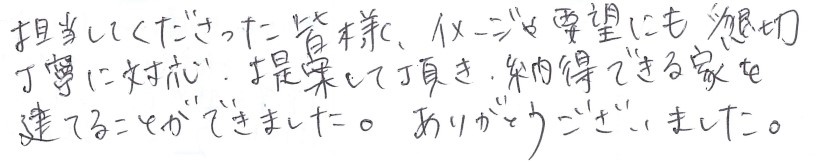 担当してくださった皆様、イメージや要望にも懇切
丁寧に対応、提案して頂き、納得できる家を
建てることができました。ありがとうございました。